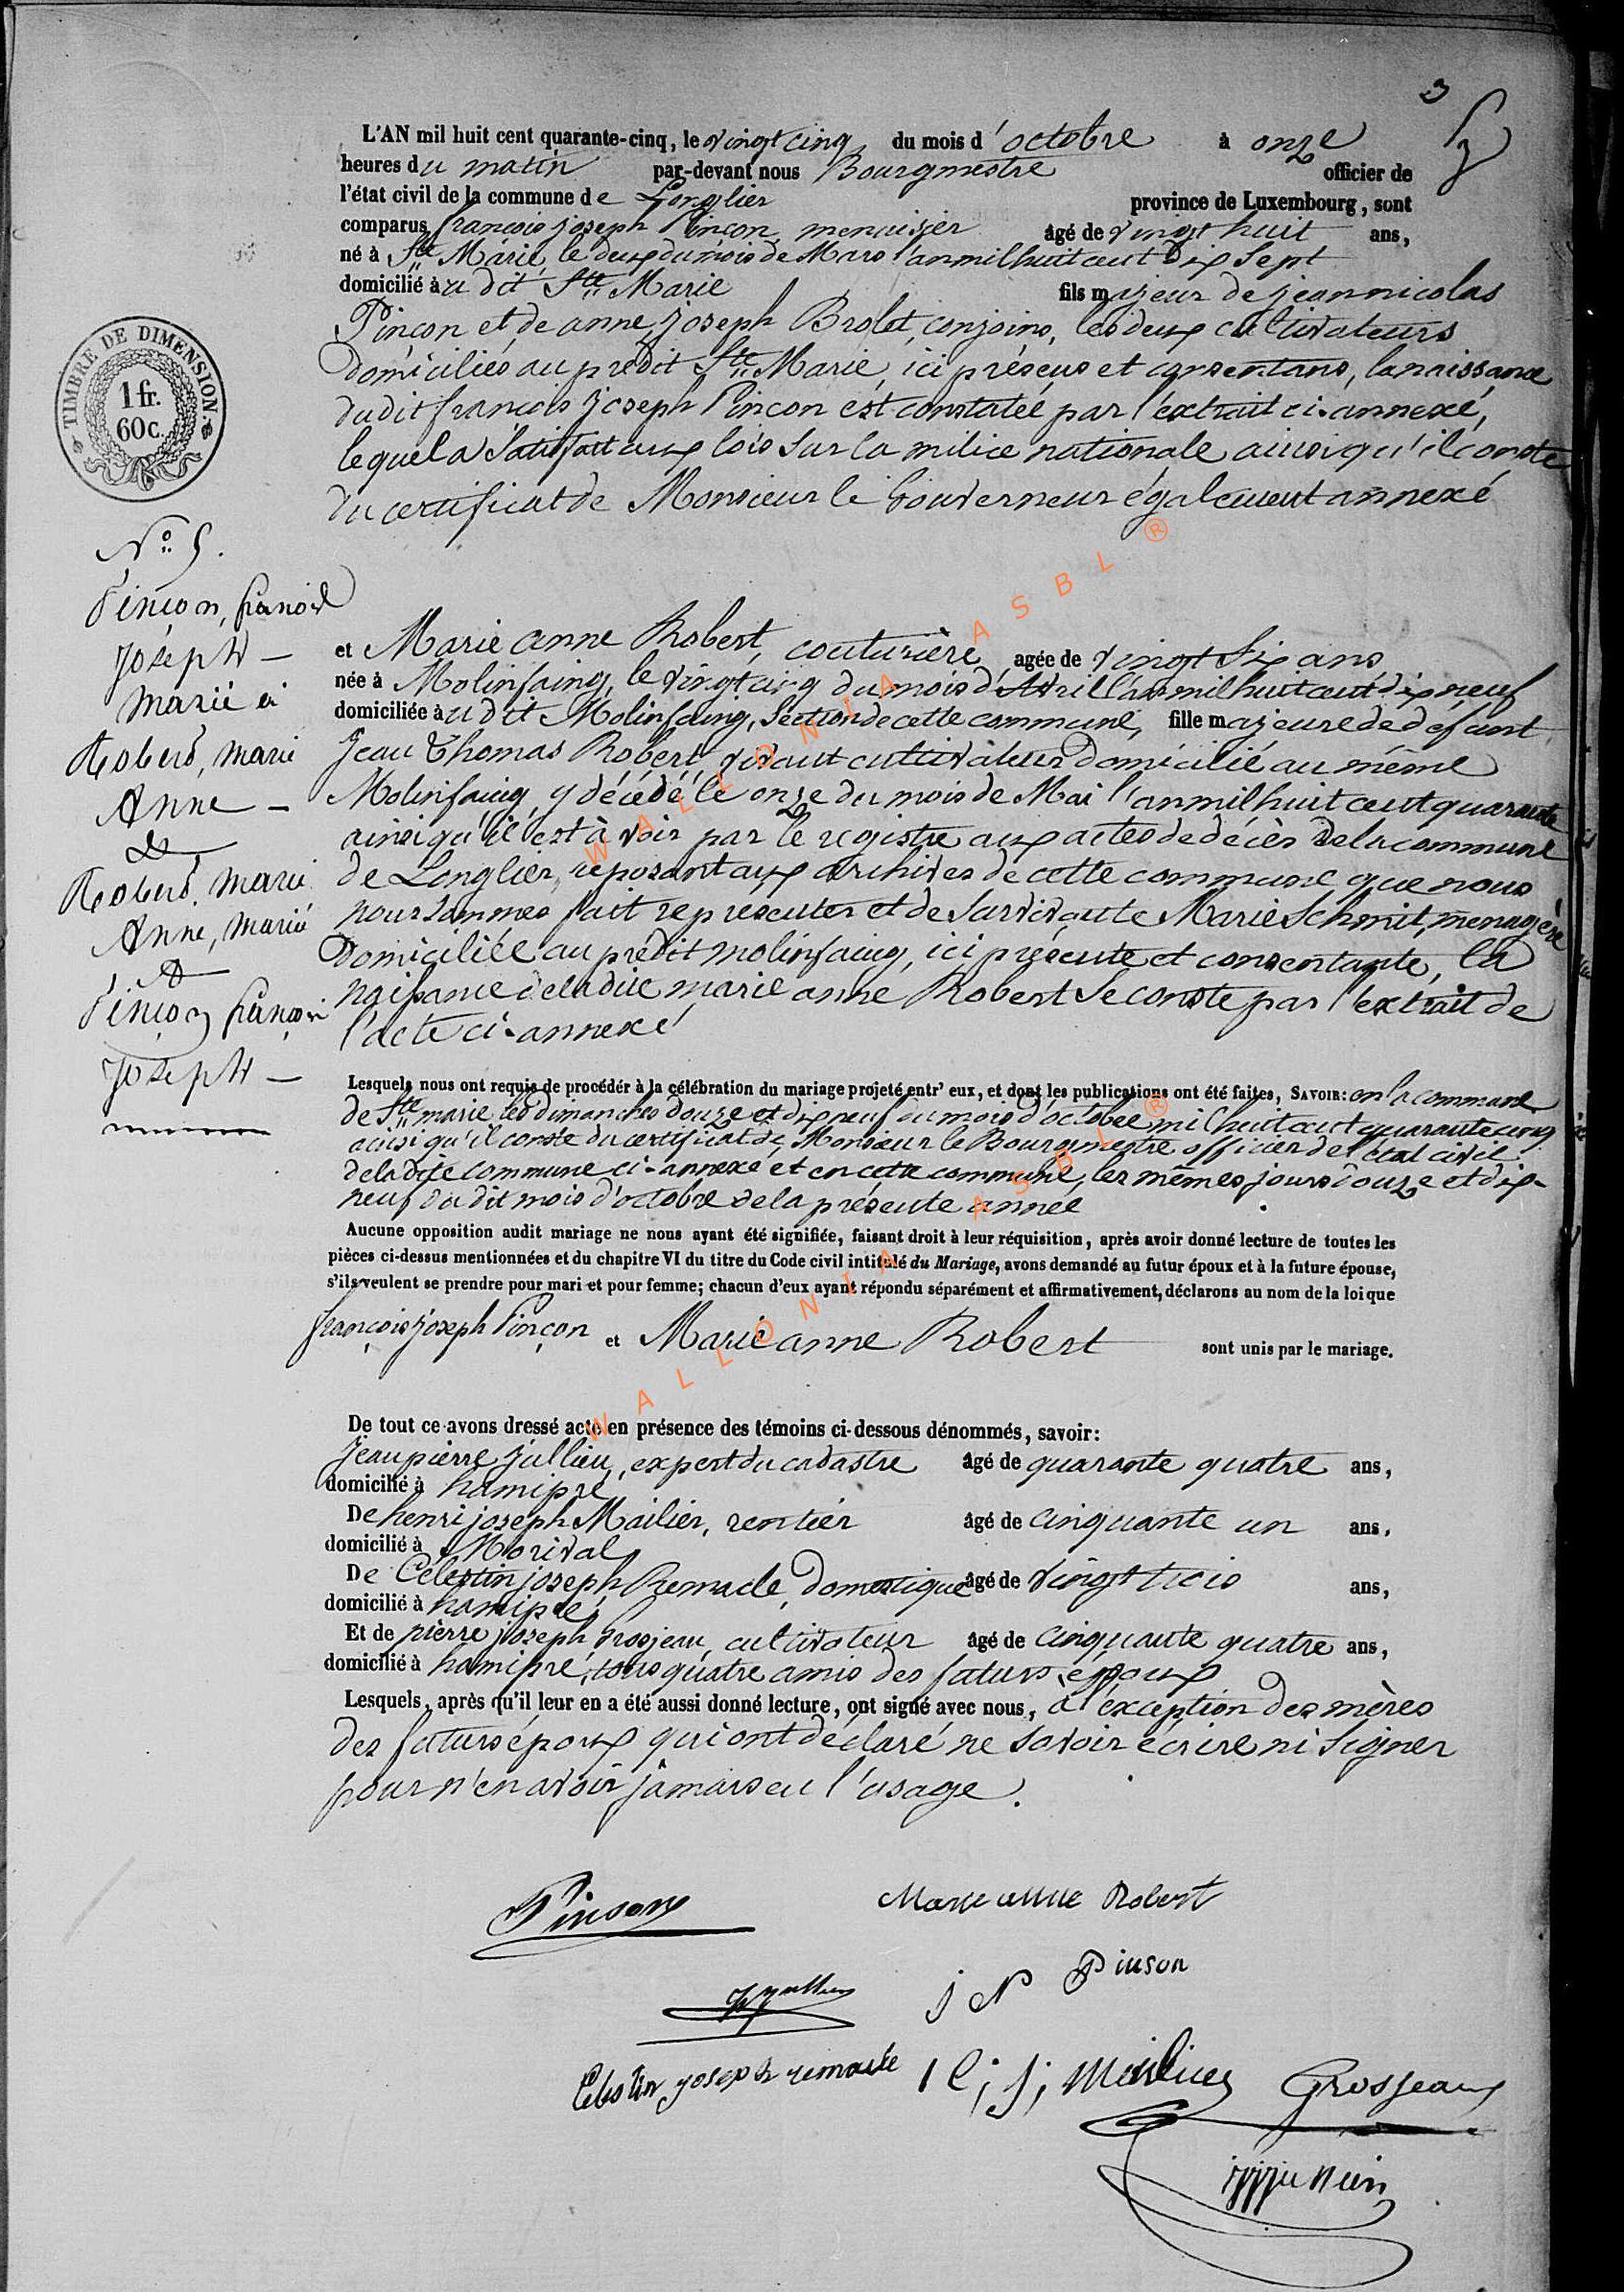 3
L'AN mil huit cent quarante-cinq, le vingt cinq du mois d'octobre à onze
heures du matin par-devant nous Bourgmestre officier de
l'état civil de la commune de Longlier province de Luxembourg, sont
comparus françois joseph Pinçon menuisier âgé de vingt huit ans,
né à Ste Marie, le deux du mois de Mars l'an mil huit cent dix sept
domicilié àu dit Ste Marie fils majeur de jean nicolas
Pinçon et de anne joseph Brolet, conjoins, les deux cultivateurs
domiciliés au prédit Ste Marie, ici présens et consentans, la naissance
du dit françois joseph Pinçon est constatée par l'extrait ci-annexé,
lequel a satisfait aux lois sur la milice nationale ainsi qu'il conste
du certificat de Monsieur le Gouverneur également annexé
TIMBRE DE DIMENSION.
1 fr.
60 c.
No. 5.
Pinçon, françois
Joseph —
marié à
Robert, marie
Anne —
&
Robert, marie
Anne, marié
à
Pinçon françois
Joseph —
et Marie anne Robert, couturière agée de vingt six ans
née à Molinfaing, le vingt cinq du mois d'Avril l'an mil huit cent dix neuf
domiciliée àu dit Molinfaing, section de cette commune, fille majeure de défunt
Jean Thomas Robert, vivant cultivateur domicilié au même
Molinfaing, y décédé le onze du mois de Mai l'an mil huit cent quarante
ainsi qu'il est à voir par le registre aux actes de décès de la commune
de Longlier, reposant aux archives de cette commune que nous
nous sommes fait représenter et de survivante Marie Schmit, menagère
domiciliée au prédit molinfaing, ici présente et consentante, la
naissance de la dite marie anne Robert se conste par l'extrait de
l'acte ci-annexé
Lesquels nous ont requis de procéder à la célébration du mariage projeté entr' eux, et dont les publications ont été faites, SAVOIR: en la commune
de Ste marie les dimanches douze et dix neuf du mois d'octobre mil huit cent quarante cinq
ainsi qu'il conste du certificat de Monsieur le Bourgmestre officier de l'état civil
de la dite commune ci-annexé et en cette commune, les mêmes jours douze et dix-
neuf du dit mois d'octobre de la présente année
Aucune opposition audit mariage ne nous ayant été signifiée, faisant droit à leur réquisition, après avoir donné lecture de toutes les
pièces ci-dessus mentionnées et du chapitre VI du titre du Code civil intitulé du Mariage, avons demandé au futur époux et à la future épouse,
s'ils veulent se prendre pour mari et pour femme; chacun d'eux ayant répondu séparément et affirmativement, déclarons au nom de la loi que
françois joseph Pinçon et Marie anne Robert sont unis par le mariage.
De tout ce avons dressé acte en présence des témoins ci-dessous dénommés, savoir:
Jean pierre Jullien, expert du cadastre âgé de quarante quatre ans,
domicilié à hamipré
De henri joseph Mailier, rentier âgé de cinquante un ans,
domicilié à Morival
De Célestin joseph Remacle, domestique âgé de vingt trois ans,
domicilié à hamipré
Et de pierre joseph Grosjean, cultivateur âgé de cinquante quatre ans,
domicilié à hamipré, tous quatre amis des futurs époux
Lesquels, après qu'il leur en a été aussi donné lecture, ont signé avec nous, à l'exception des mères
des futurs époux qui ont déclaré ne savoir écrire ni signer
pour n'en avoir jamais eu l'usage.
Pinson Marie anne Robert
j N Pinson
Celestin joseph remacle
Grosjean
WALLONIA ASBL ®
WALLONIA ASBL ®